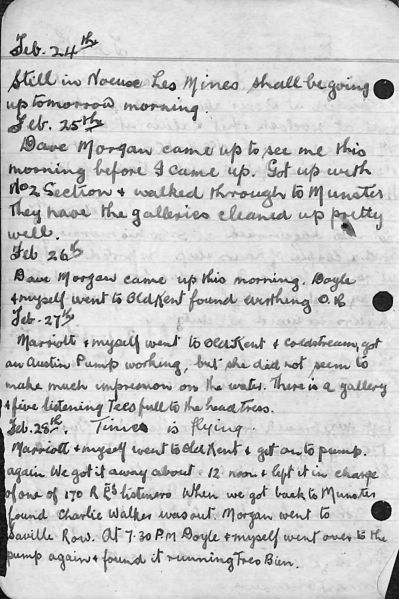 Feb. 24th
Still in Noeuse Les Mines shall be going
up tomorrow morning.
Feb. 25th
Dave Morgan came up to see me this
morning before I came up. Got up with
No 2 Section + walked through to Munster
They have the galleries cleaned up pretty
well.
Feb 26th
Dave Morgan came up this morning. Doyle
+ myself went to Old Kent found everthing O.K.
Feb. 27th
Marriott + myself went to Old Kent + Coldstream, got
an Austin Pump working, but she did not seem to
make much impression on the water. There is a gallery
+ five listening Tees full to the head Tress.
Feb. 28th. Time is flying.
Marriott + myself went to Old Kent + get on to pump
again We got it away about 12 noon + left it in charge
of one of 170 R Es listiners When we got back to Munster
found Charlie Walker was out. Morgan went to
Saville Row. At 7.30 P.M Doyle + myself went over to the
pump again + found it running Tres Bien.